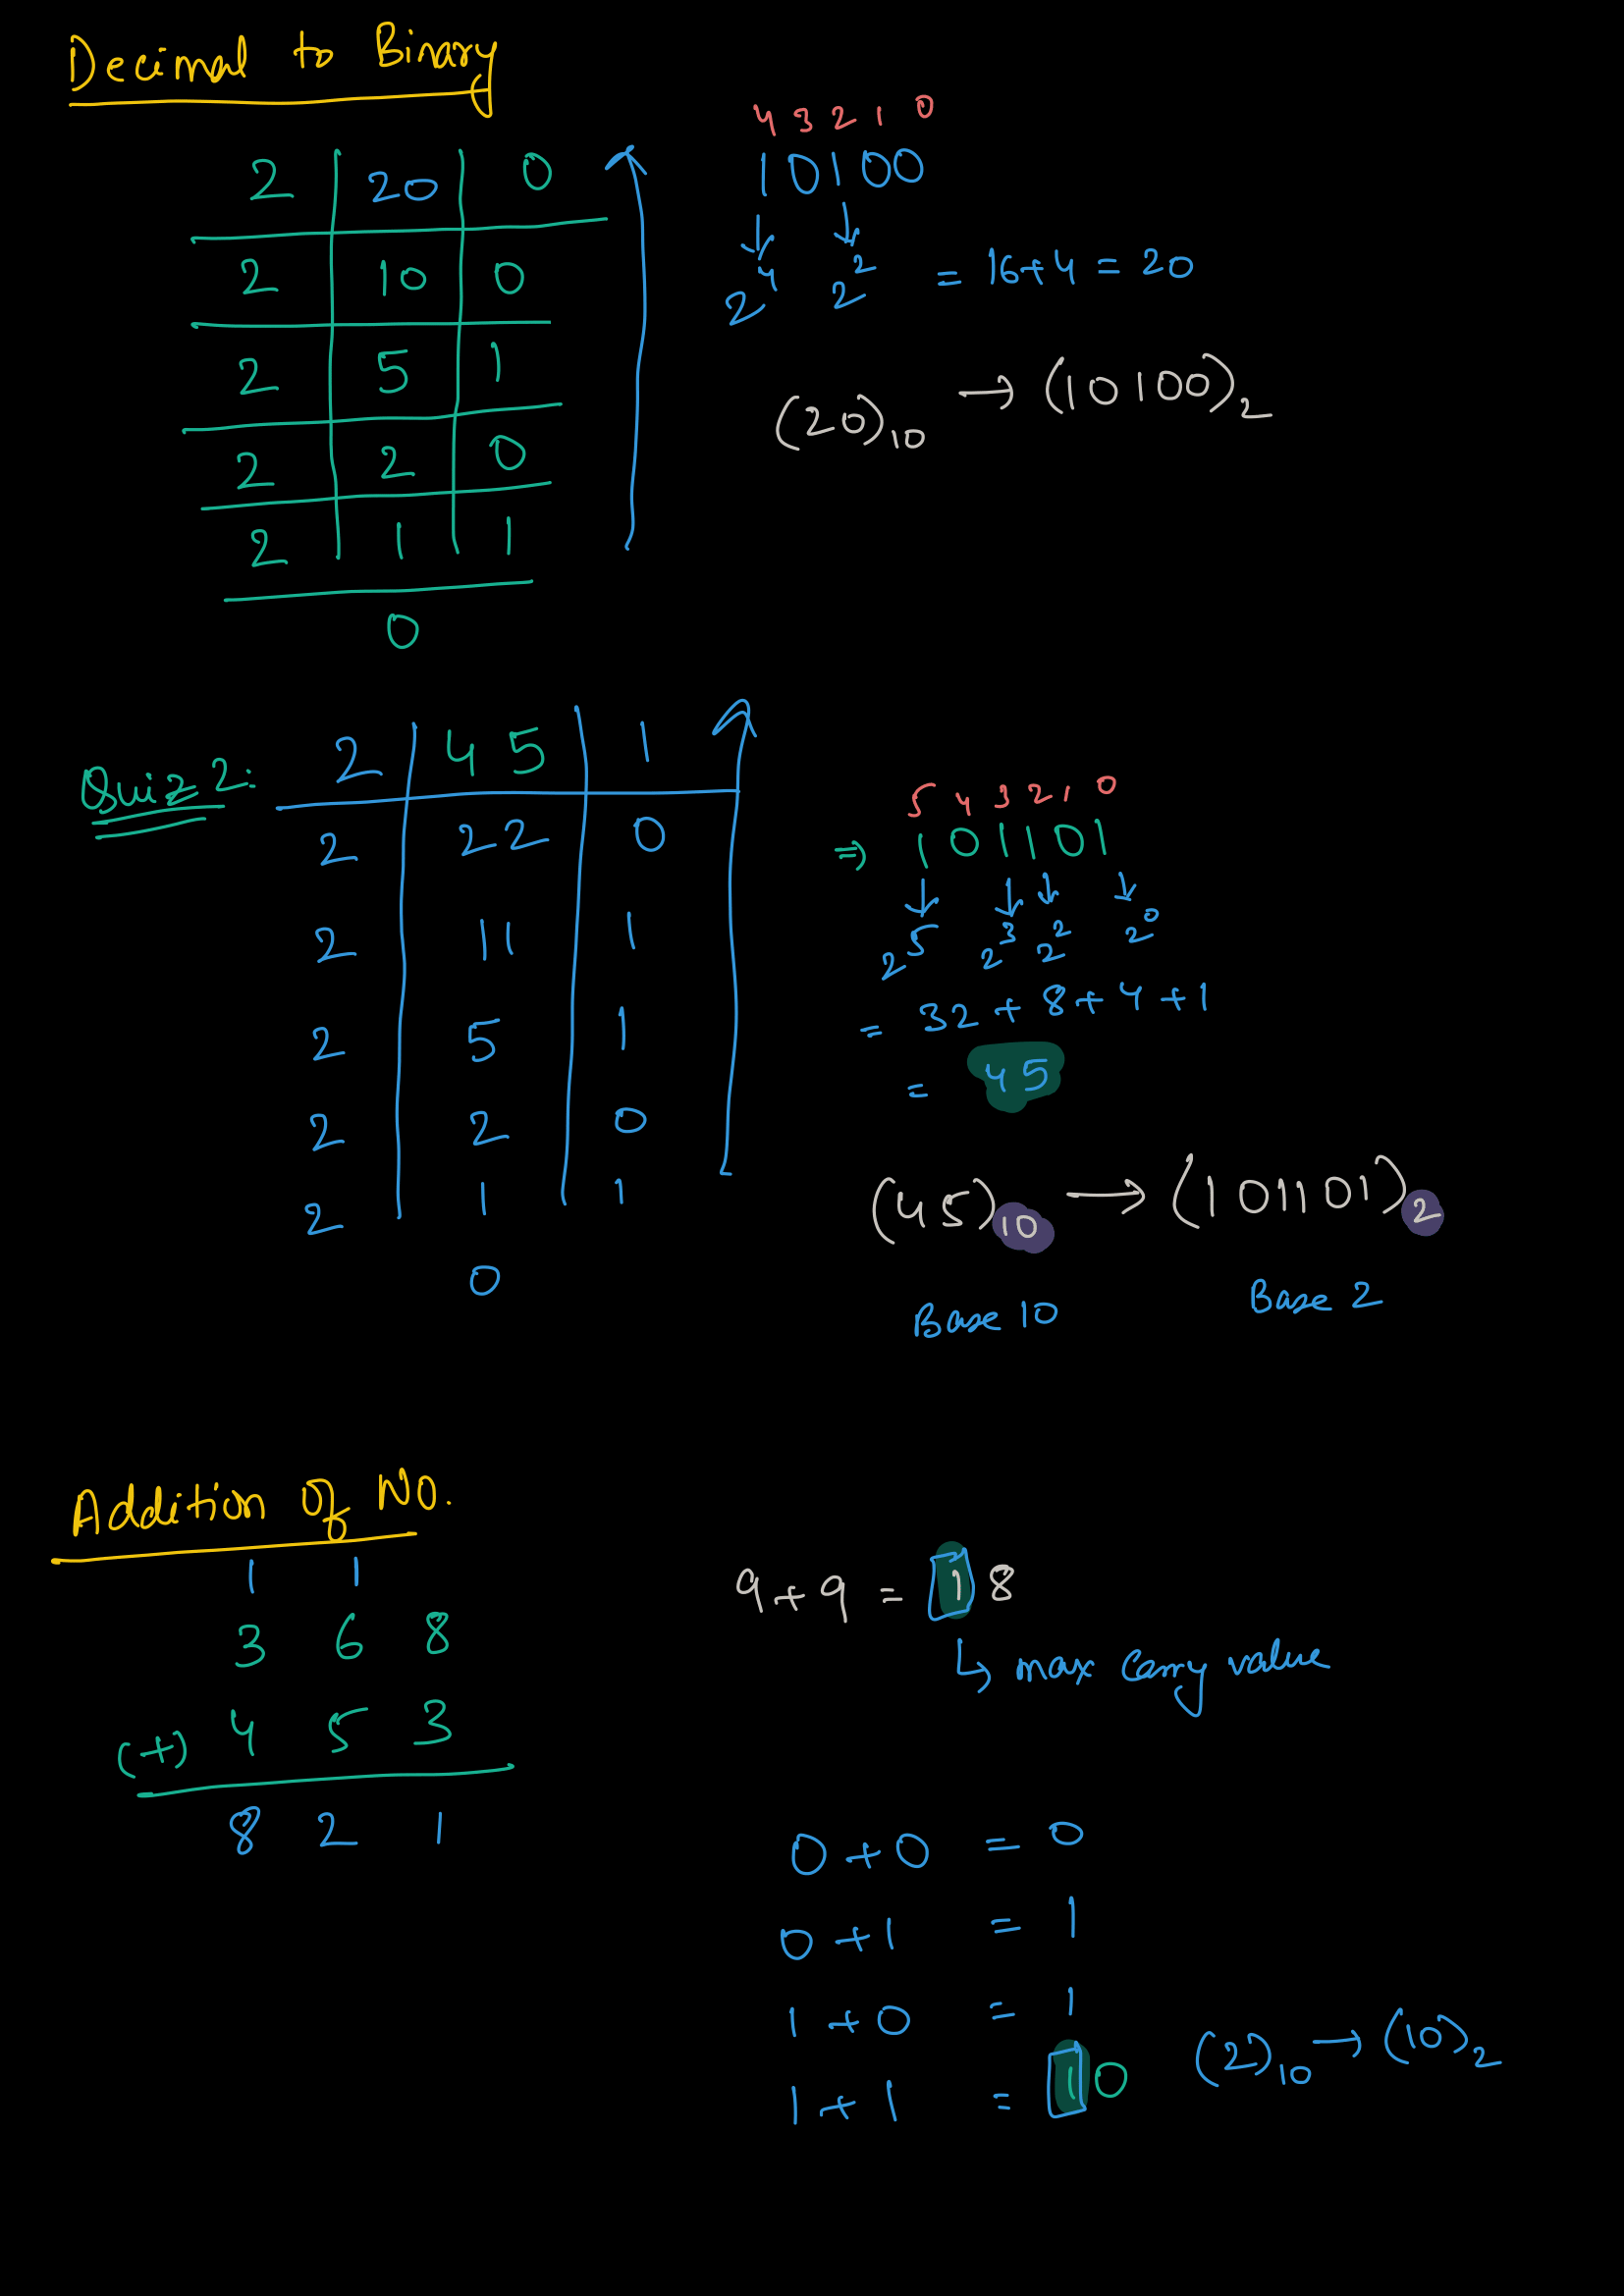 Decimal to Binary
2 | 20 | 0
2 | 10 | 0
2 | 5 | 1
2 | 2 | 0
2 | 1 | 1
0
4 3 2 1 0
10100
↓ ↓
2⁴ 2² = 16+4 = 20
(20)₁₀ → (10100)₂
Quiz 2:
2 | 45 | 1
2 | 22 | 0
2 | 11 | 1
2 | 5 | 1
2 | 2 | 0
2 | 1 | 1
0
5 4 3 2 1 0
⇒ 101101
↓ ↓ ↓ ↓
2⁵ 2³ 2² 2⁰
= 32 + 8 + 4 + 1
= 45
(45)₁₀ → (101101)₂
Base 10 Base 2
Addition of No.
1 1
3 6 8
(+) 4 5 3
8 2 1
9+9 = 18
↳ max carry value
0+0 = 0
0+1 = 1
1+0 = 1
1+1 = 10 (2)₁₀ → (10)₂